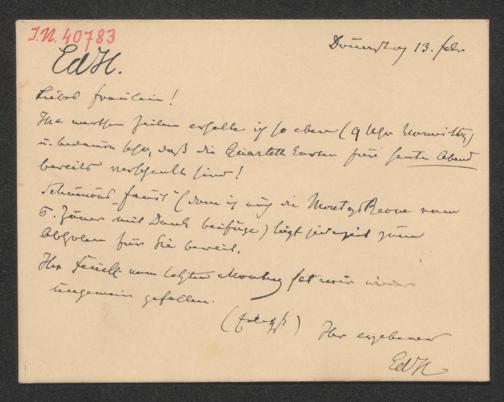 J.N. 40783
EdH.
Donnerstag 13. Febr
Liebes Fräulein!
Ihre werthen Zeilen erhalte ich so eben (9 Uhr Vormittag)
u. bedaure sehr, daß die Quartett Karten für heute Abend
bereits verschenkt sind!
Schumanns Faust (dem ich auch die Montags Revue vom
5. Jänner mit Dank beifüge) liegt jederzeit zum
Abholen für Sie bereit.
Ihr vom letzten Montag hat mir wieder
ungemein gefallen.
Ihr ergebener
EdH